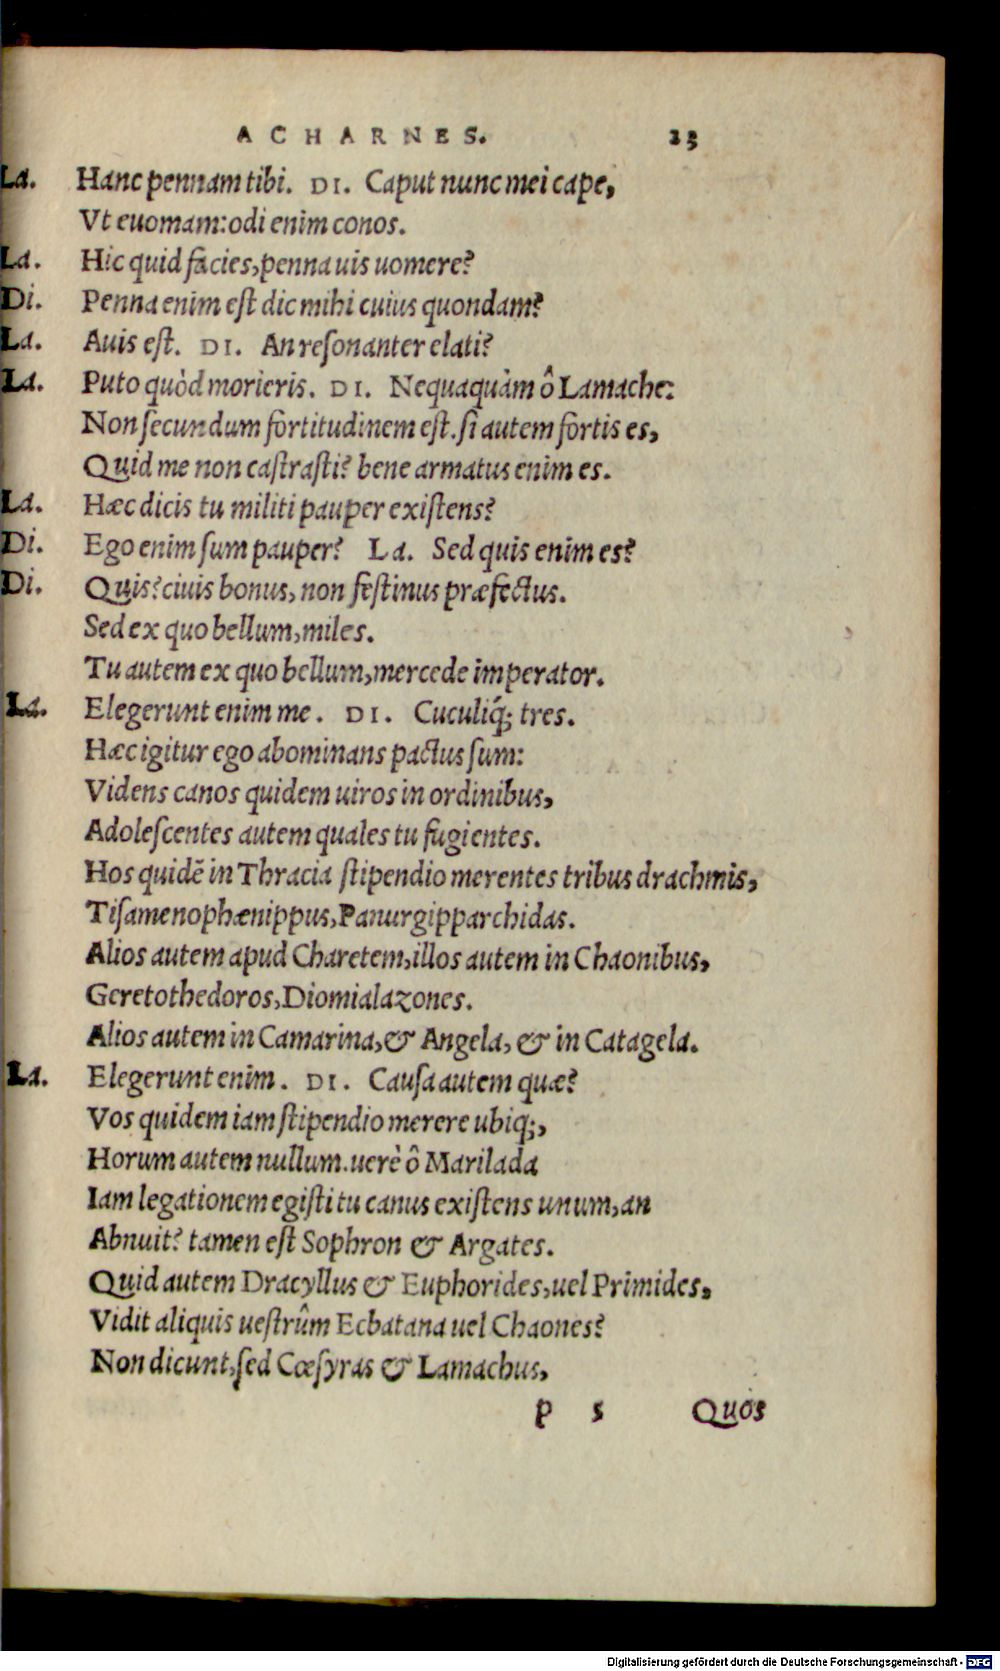 ACHARNES. 23
La. Hanc pennam tibi. DI. Caput nunc mei cape,
Vt euomam: odi enim conos.
La. Hic quid facies, penna uis uomere?
Di. Penna enim est dic mihi cuius quondam?
La. Auis est. DI. An resonanter elati?
La. Puto quòd morieris. DI. Nequaquàm ô Lamache:
Non secundum fortitudinem est. si autem fortis es,
Quid me non castrasti? bene armatus enim es.
La. Hæc dicis tu militi pauper existens?
Di. Ego enim sum pauper? La. Sed quis enim es?
Di. Quis? ciuis bonus, non festinus præfectus.
Sed ex quo bellum, miles.
Tu autem ex quo bellum, mercede imperator.
La. Elegerunt enim me. DI. Cuculiq́; tres.
Hæc igitur ego abominans pactus sum:
Videns canos quidem uiros in ordinibus,
Adolescentes autem quales tu fugientes.
Hos quidẽ in Thracia stipendio merentes tribus drachmis,
Tisamenophænippus, Panurgipparchidas.
Alios autem apud Charetem, illos autem in Chaonibus,
Geretothedoros, Diomialazones.
Alios autem in Camarina, & Angela, & in Catagela.
La. Elegerunt enim. DI. Causa autem quæ?
Vos quidem iam stipendio merere ubiq;,
Horum autem nullum. uerè ô Marilada
Iam legationem egisti tu canus existens unum, an
Abnuit? tamen est Sophron & Argates.
Quid autem Dracyllus & Euphorides, uel Primides,
Vidit aliquis uestrûm Ecbatana uel Chaones?
Non dicunt, sed Cœsyras & Lamachus,
p 5 Quos
Digitalisierung gefördert durch die Deutsche Forschungsgemeinschaft - DFG